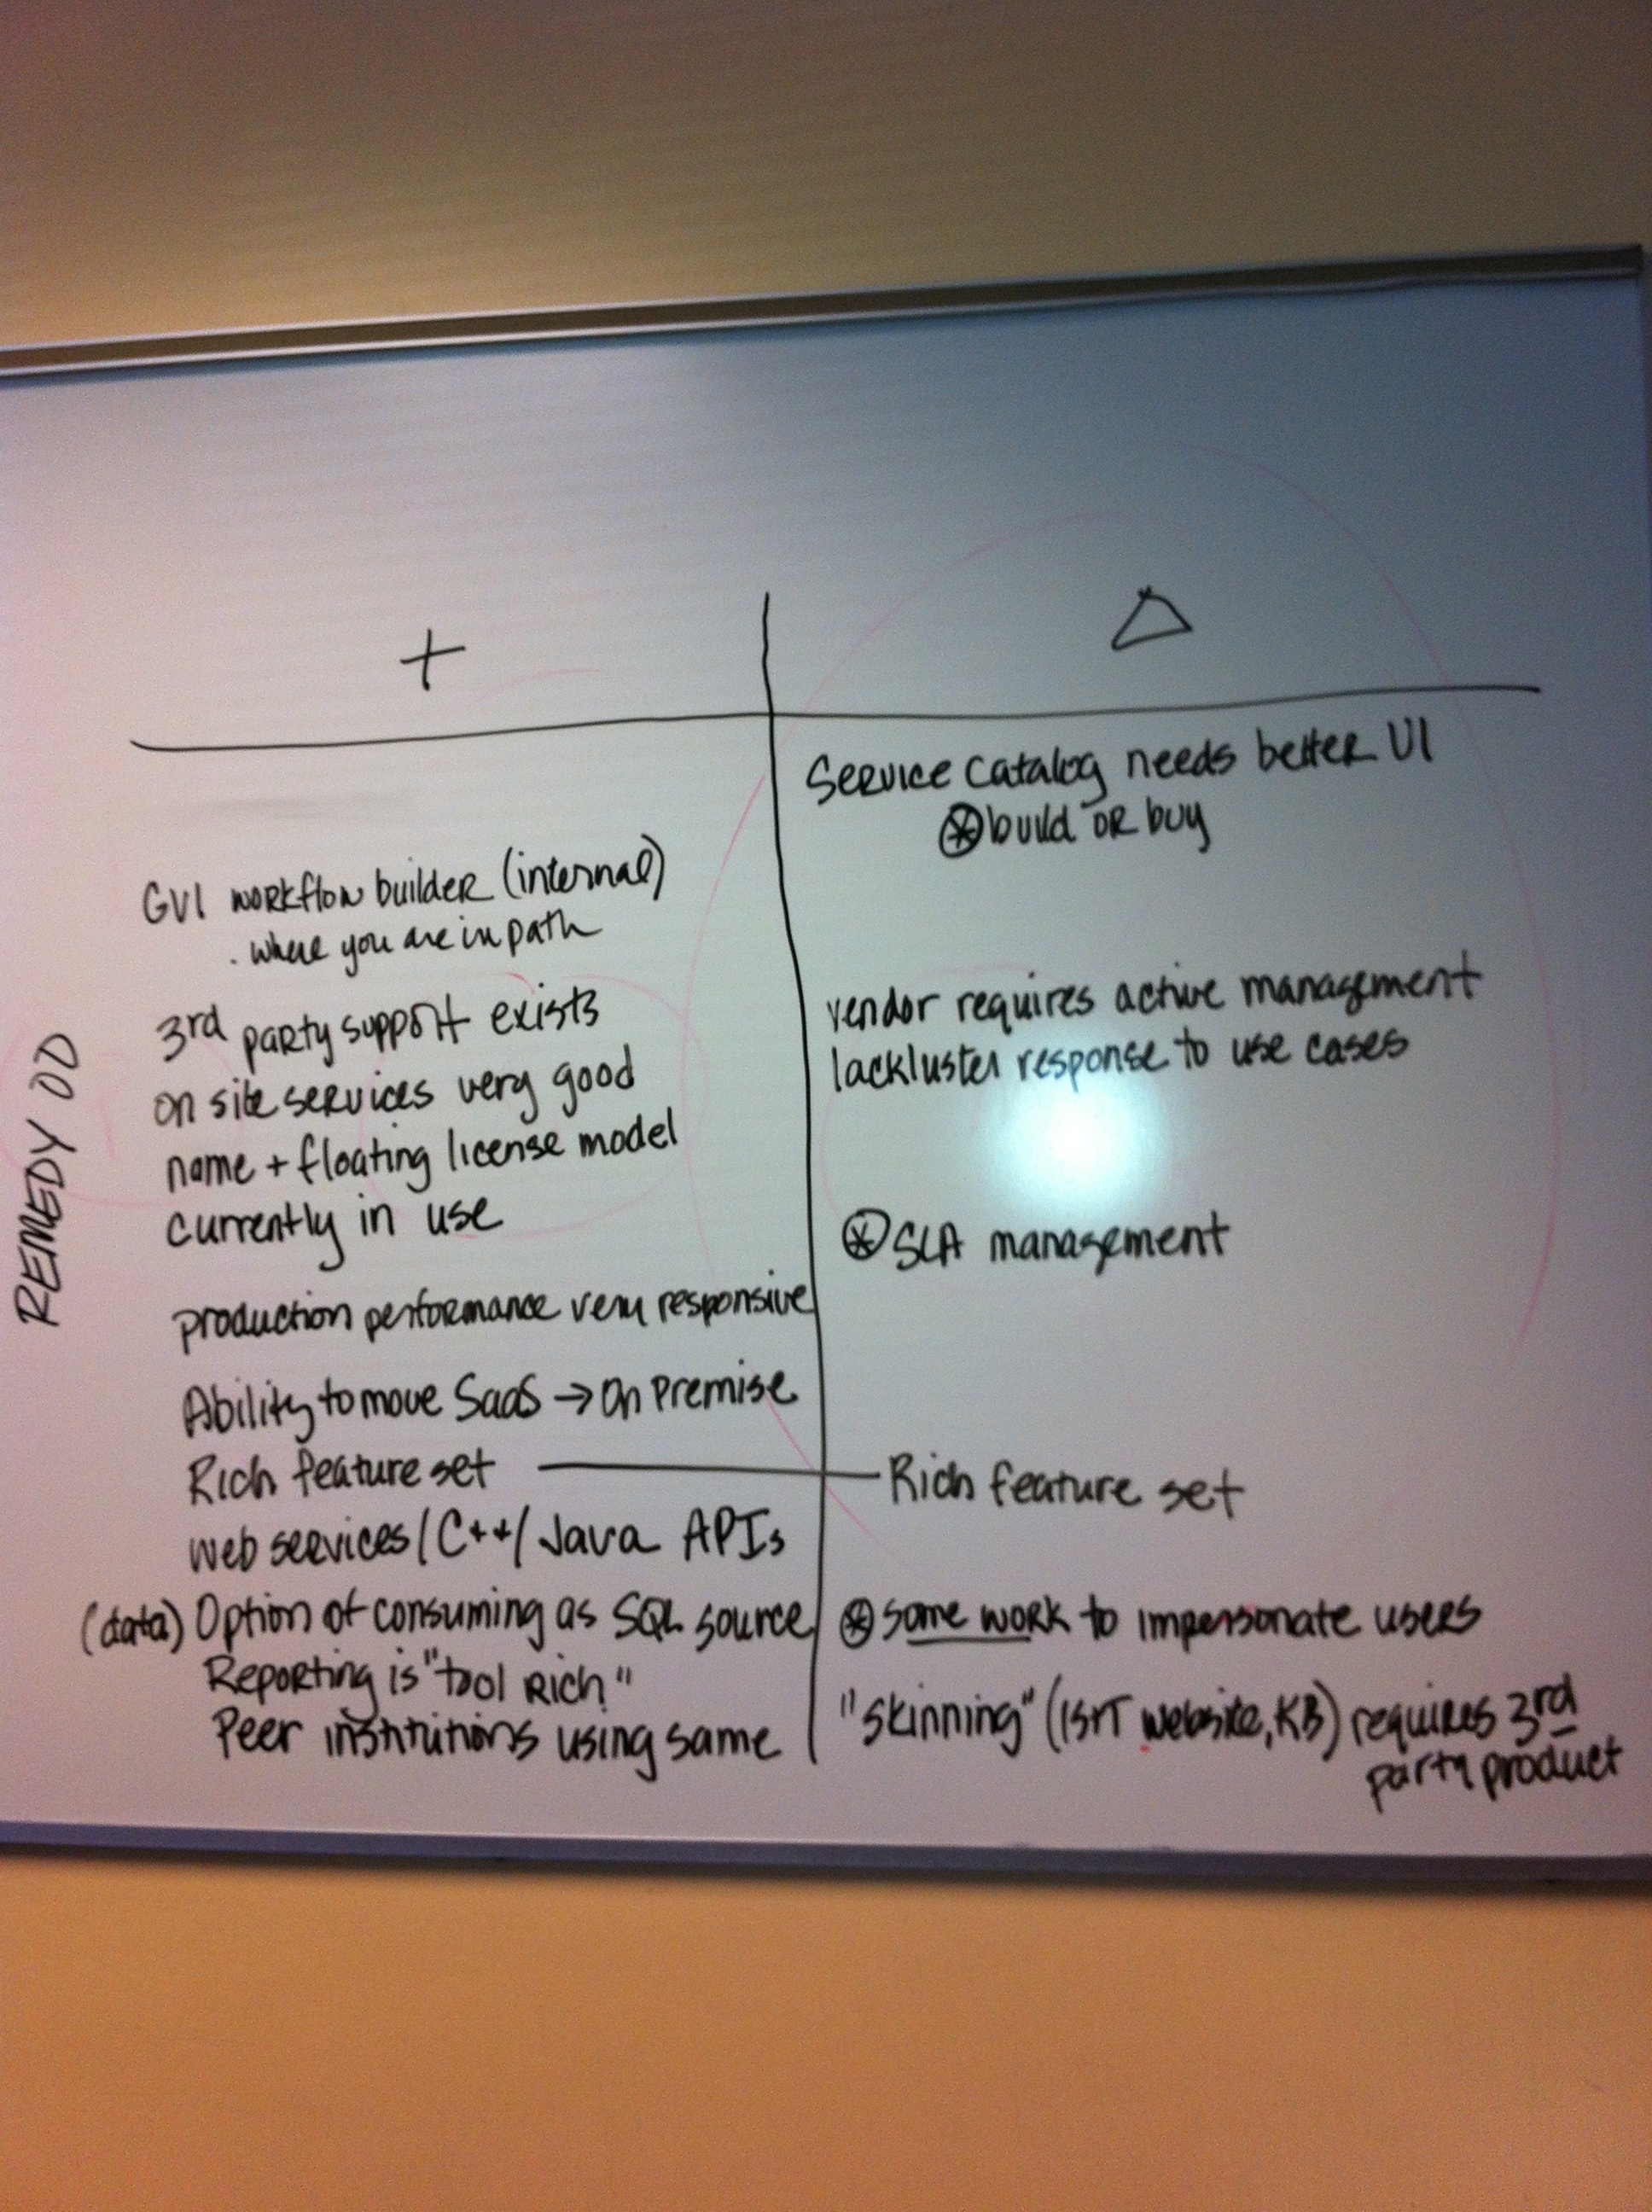 REMEDY OD
+
△
GUI workflow builder (internal)
. where you are in path
3rd party support exists
on site services very good
name + floating license model
currently in use
production performance very responsive
Ability to move SaaS → On Premise
Rich feature set
web services / C++ / Java APIs
(data) Option of consuming as SQL source
Reporting is "tool rich"
Peer institutions using same
Service Catalog needs better UI
⊛ build or buy
vendor requires active management
lackluster response to use cases
⊛ SLA management
Rich feature set
⊛ some work to impersonate users
"skinning" (IS&T website, KB) requires 3rd
party product